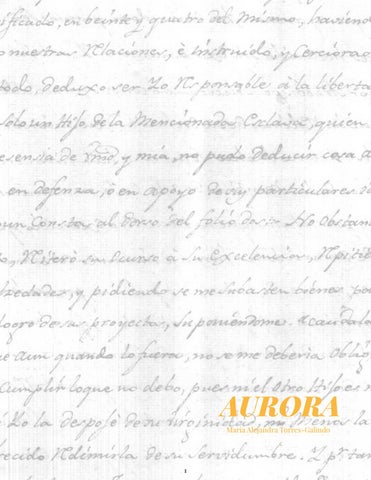 ificado, en beinte y quatro del Mismo, haviend
nuestras Relaciones, è instruido, y Cerciora
todo, deduxo ser Yo Responsable à la liberta
solo un Hijo, de la Mencionada Esclava, quien
esensia de Vmd, y mia, no pudo deducir cosa a
en defenza, ò en apoyo de sus particulares
Consta, al dorso del folio dos = No Obstan
Reiterò su Ocurso à Su Excelencia, Repitie
y pidiendo se me subasten bienes pa
logro de sus proyectos, suponiendome
aun quando lo fuera, no se me deberia Oblig
Cumplir loque no debo, pues ni el otro Hijo es
Yo la despojè de su virginidad, ni Menos la
recido Redimirla de su Servidumbre. Y pr tan
AURORA
María Alejandra Torres-Galindo
1